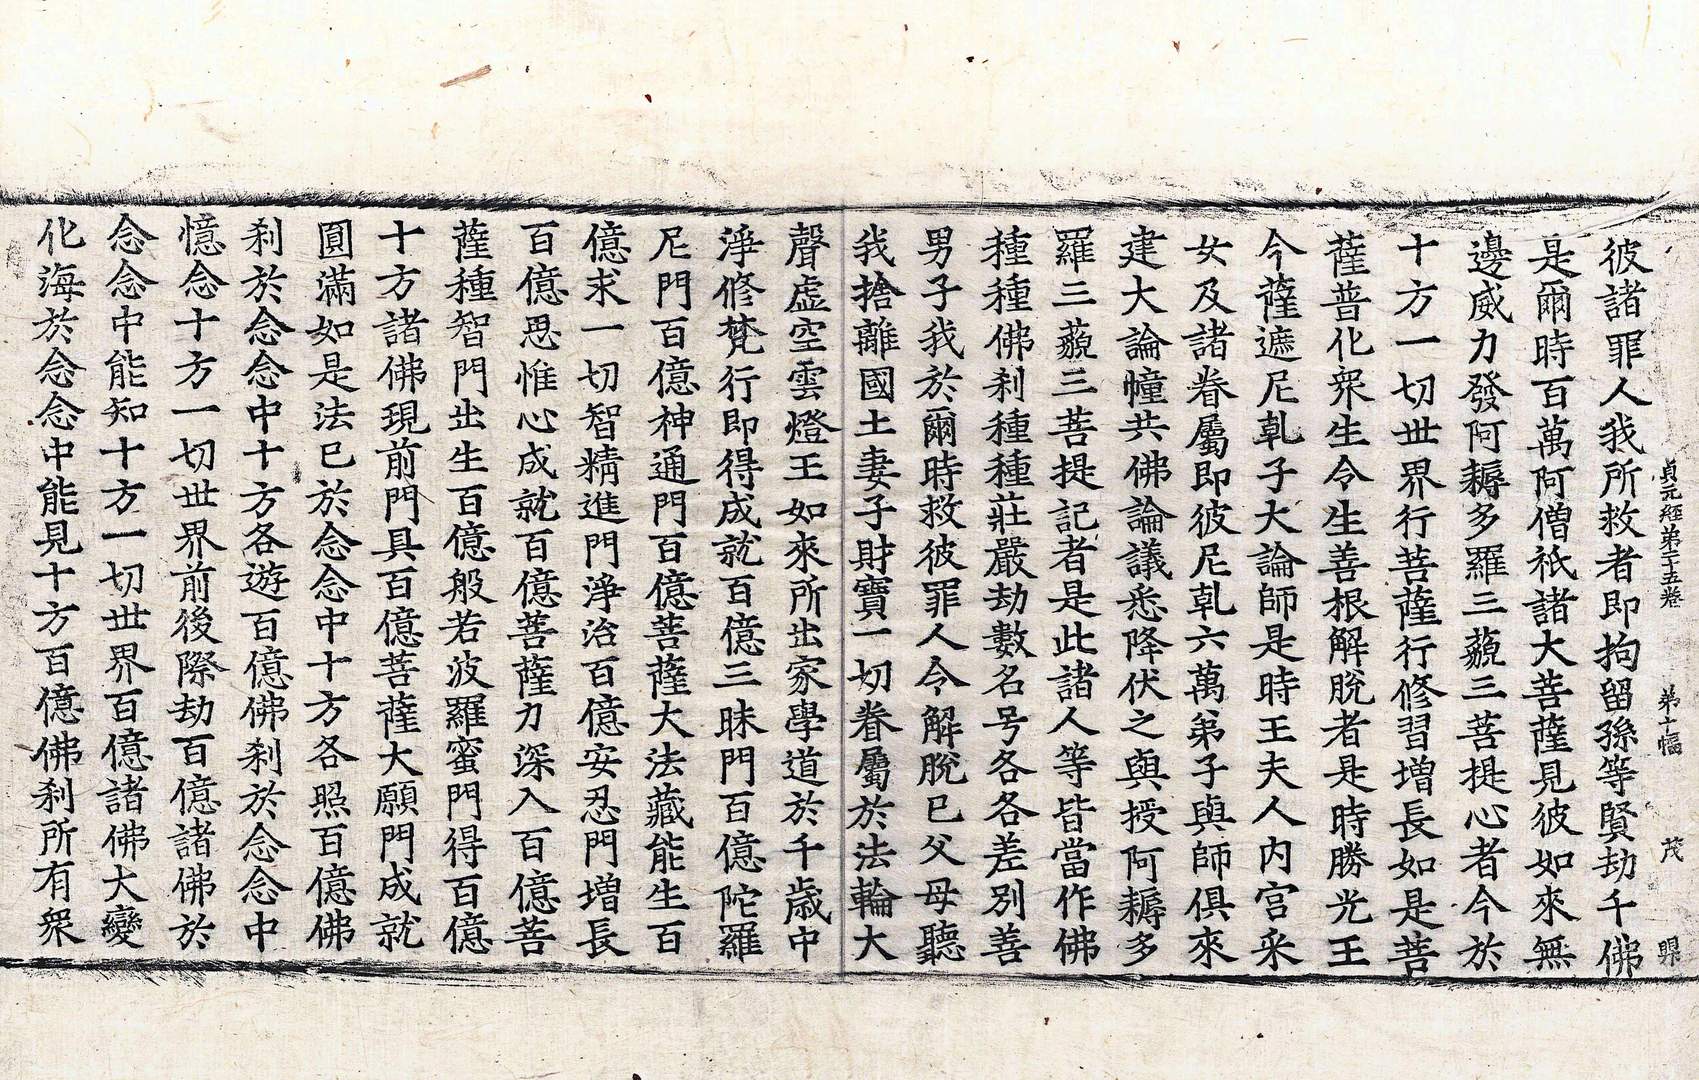 貞元經第二十五卷 第十幅 茂
彼諸罪人我所救者即拘留孫等賢劫千佛
是爾時百萬阿僧祇諸大菩薩見彼如來無
邊威力發阿耨多羅三藐三菩提心者今於
十方一切世界行菩薩行修習增長如是菩
薩普化衆生令生善根解脫者是時勝光王
今薩遮尼乹子大論師是時王夫人内宮采
女及諸眷屬即彼尼乹六萬弟子與師俱來
建大論幢共佛論議悉降伏之與授阿耨多
羅三藐三菩提記者是此諸人等皆當作佛
種種佛刹種種莊嚴劫數名号各各差別善
男子我於爾時救彼罪人令解脫已父母聽
我捨離國土妻子財寶一切眷屬於法輪大
聲虛空雲燈王如來所出家學道於千歲中
淨修梵行即得成就百億三昧門百億陀羅
尼門百億神通門百億菩薩大法藏能生百
億求一切智精進門淨治百億安忍門增長
百億思惟心成就百億菩薩力深入百億菩
薩種智門出生百億般若波羅蜜門得百億
十方諸佛現前門具百億菩薩大願門成就
圓滿如是法已於念念中十方各照百億佛
刹於念念中十方各遊百億佛刹於念念中
憶念十方一切世界前後際劫百億諸佛於
念念中能知十方一切世界百億諸佛大變
化海於念念中能見十方百億佛刹所有衆